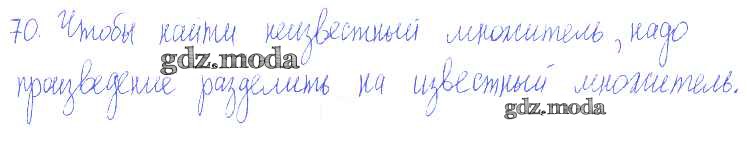 70. Чтобы найти неизвестный множитель, надо
gdz.moda
произведение разделить на известный множитель.
gdz.moda